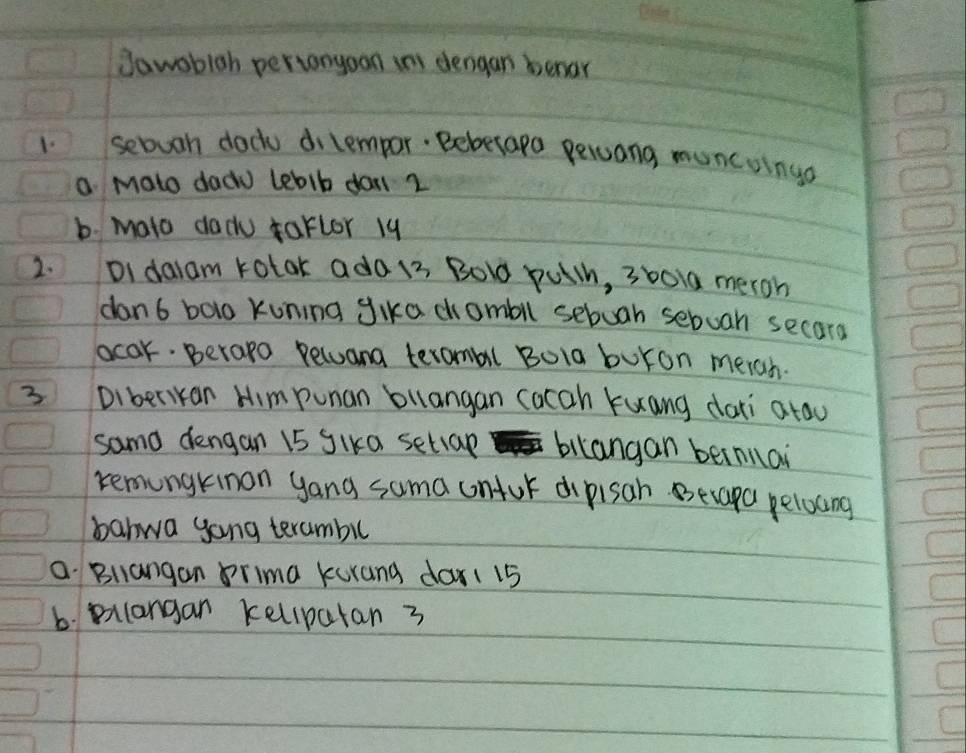 Jawablah pertanyaan ini dengan benar
1. sebuah dadu dilempar. Beberapa peluang munculnya
a. Mata dadu lebih dari 2
b. Mata dadu faktor 14
2. Di dalam kotak ada 13 Bola putih, 3 bola merah
dan 6 bola kuning jika diambil sebuah sebuah secara
acak. Berapa peluang terambil Bola bukan merah.
3 Diberikan Himpunan bilangan cacah kurang dari atau
sama dengan 15 jika setiap bilangan bernilai
kemungkinan yang sama untuk dipisah. Berapa peluang
bahwa yang terambil
a. Bilangan prima kurang dari 15
b. Bilangan kelipatan 3